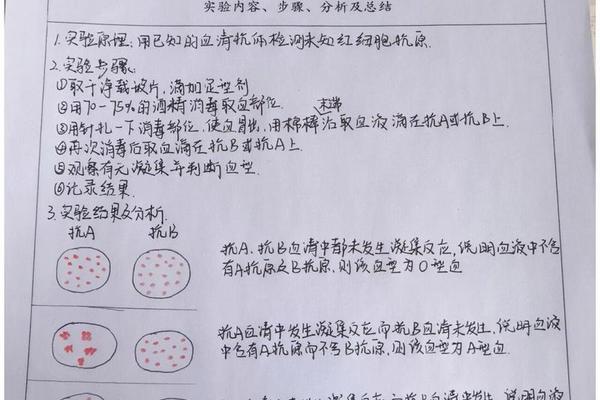 实验内容、步骤、分析及总结
1.实验原理:用已知的血清抗体检测未知红细胞抗原.
2.实验步骤:
①取干净载玻片,滴加定型剂
②用70-75%的酒精消毒取血部位.
末端
③用针扎一下消毒部位,使血冒出,用棉棒沾取血液滴在抗A或抗B上.
④再次消毒后取血滴在抗B或抗A上.
⑤观察有无凝集并判断血型.
⑥记录结果.
3.实验结果及分析.
抗A 抗B
抗A、抗B血清中都未发生凝集反应,说明血液中不含
有A抗原及B抗原,则该血型为O型血
抗A血清中发生凝集反应而抗B血清未发生,说明血液
中含有A抗原而不含B抗原,则该血型为A型血.